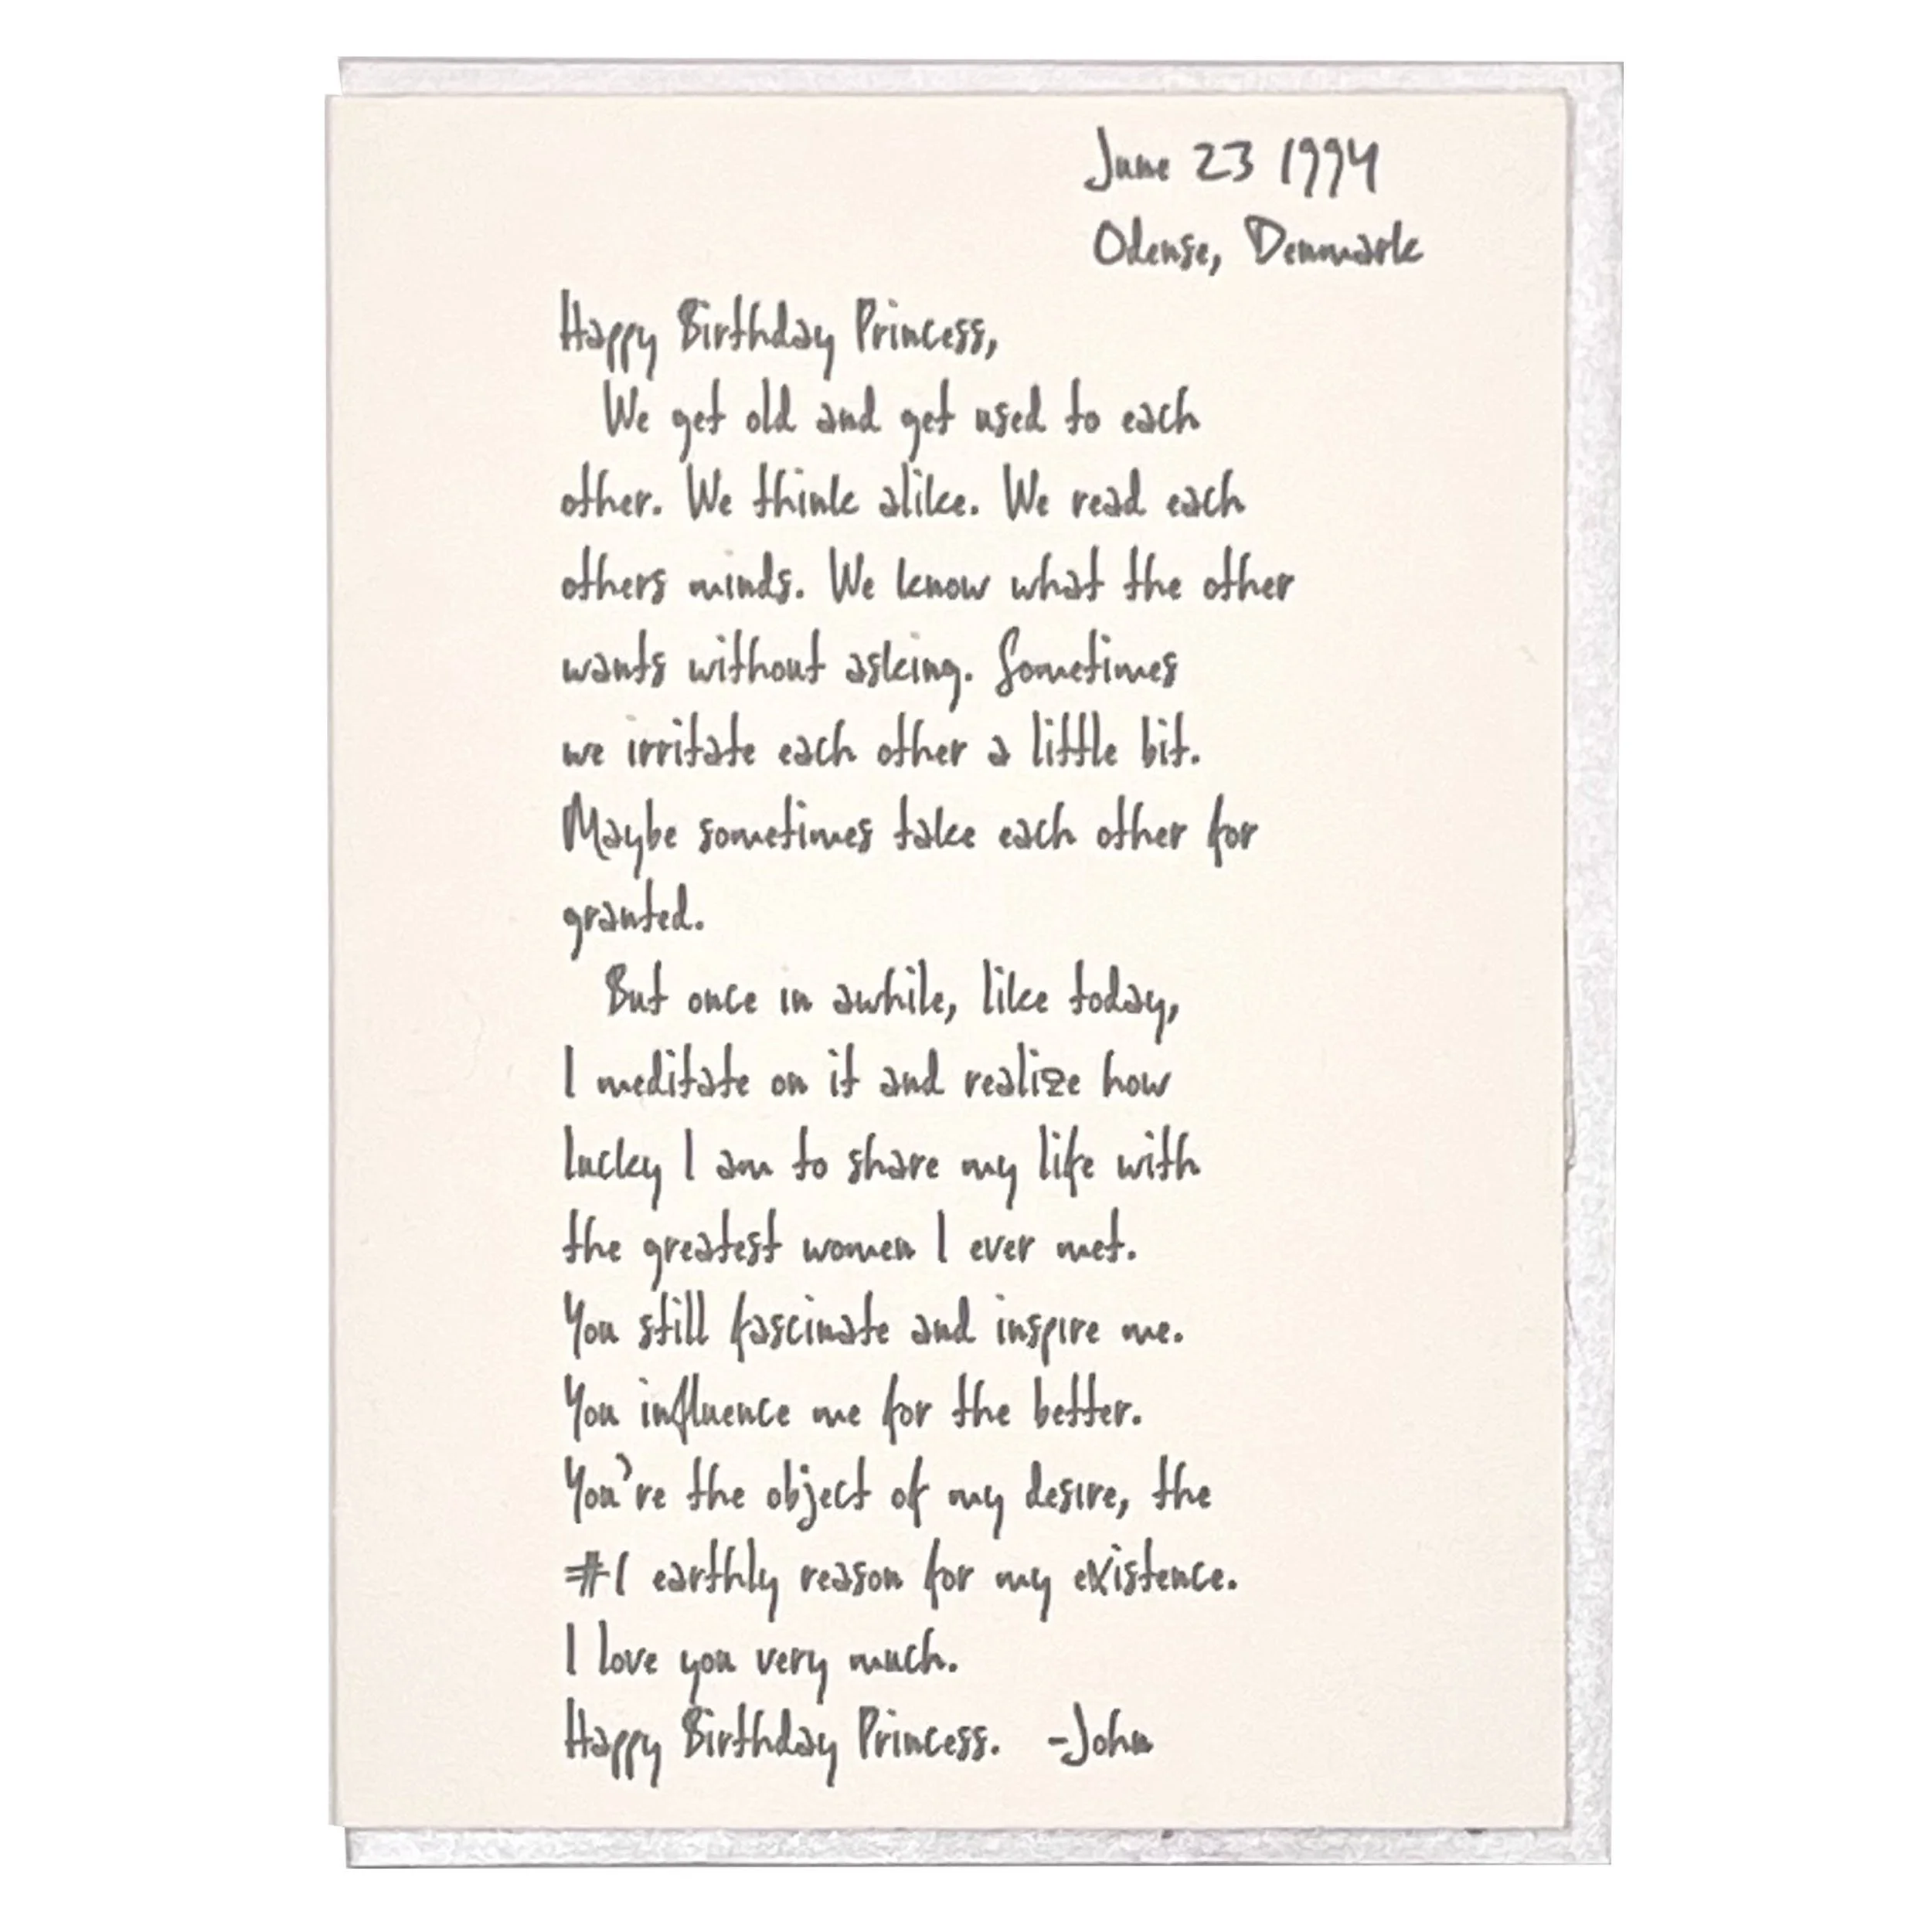 June 23 1994
Odense, Denmark
Happy Birthday Princess,
We get old and get used to each
other. We think alike. We read each
others minds. We know what the other
wants without asking. Sometimes
we irritate each other a little bit.
Maybe sometimes take each other for
granted.
But once in awhile, like today,
I meditate on it and realize how
lucky I am to share my life with
the greatest women I ever met.
You still fascinate and inspire me.
You influence me for the better.
You're the object of my desire, the
#1 earthly reason for my existence.
I love you very much.
Happy Birthday Princess. -John